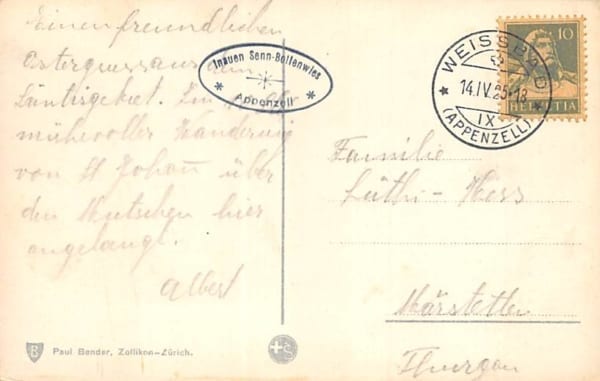 Einen freundlichen
Ostergruss aus dem
Säntisgebiet. Im
mühevoller Wanderung
von St Johann über
den Mutschen hier
angelangt.
Albert
Inauen Senn-Bollenwies
Appenzell
WEISSBAD
14.IV.25-18
IX
(APPENZELL)
10
HELVETIA
Familie
Lüthi-Hess
Märstetten
Thurgau
B Paul Bender, Zollikon-Zürich.
S